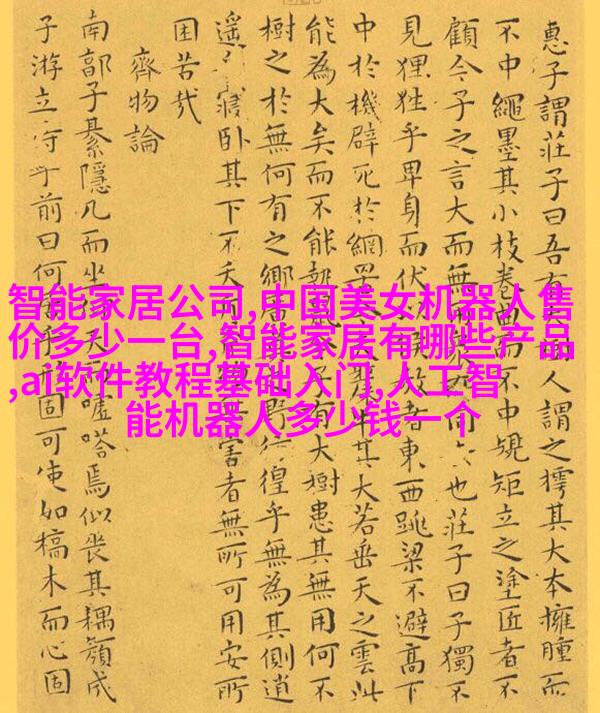 惠子謂莊子曰吾有人謂之樗其大本擁腫而
不中繩墨其小枝卷曲而不中規矩立之塗匠者不
顧今子之言大而無同也莊子曰子獨不
見狸狌乎卑身而伏者東西跳梁不避高下
中於機辟死於網牛其大若垂天之雲此
能為大矣而不能子有大樹患其無用何不
樹之於無何有之鄉野彷徨乎無為其側逍
遙寢卧其下不夭害者無所可用安所
困苦哉
齊物論
南郭子綦隱几而坐天而噓嗒焉似喪其耦顏成
子游立侍乎前曰何乎固可使如槁木而心固
智能家居公司,中国美女机器人售
价多少一台,智能家居有哪些产品
,ai软件教程基础入门,人工智
能机器人多少钱一个